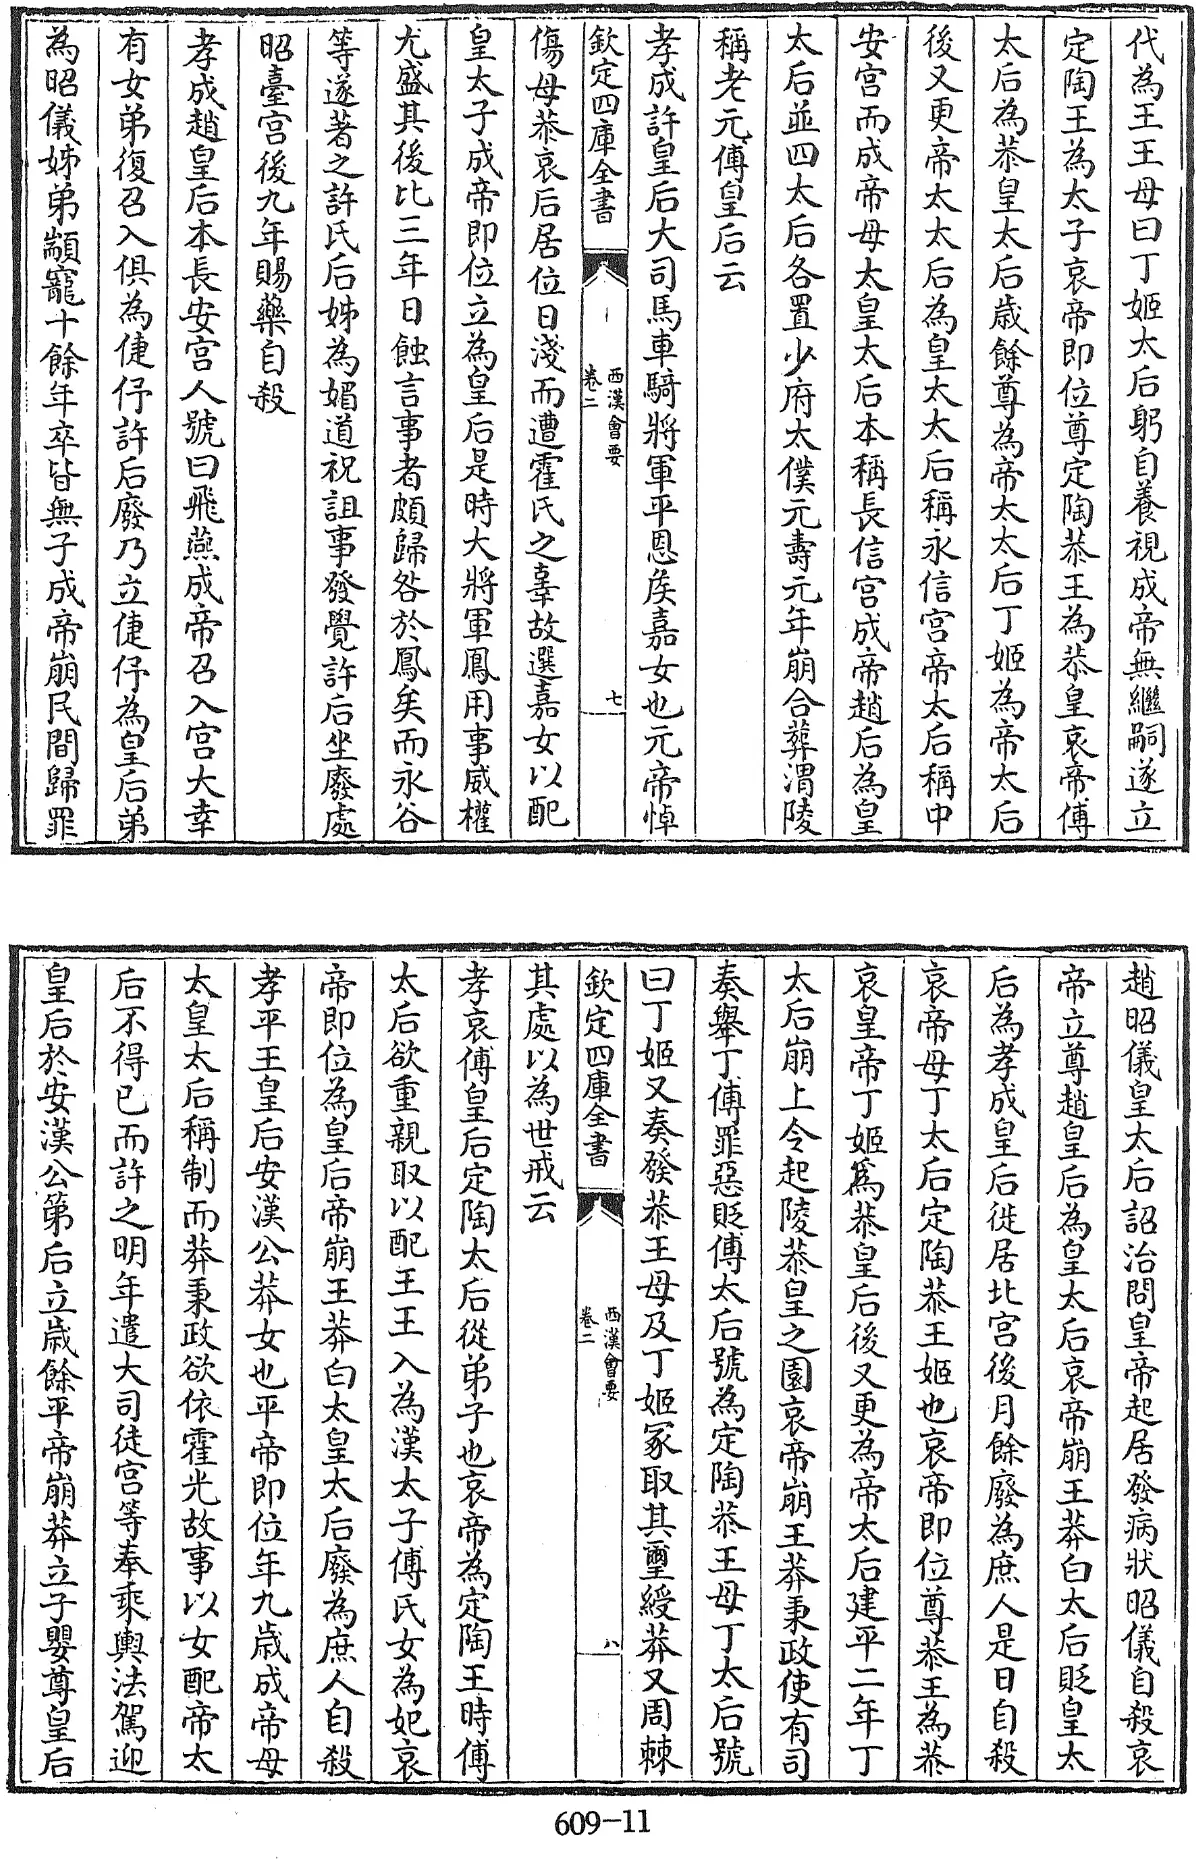 代為王王母曰丁姬太后躬自養視成帝無繼嗣遂立
定陶王為太子哀帝即位尊定陶恭王為恭皇哀帝傅
太后為恭皇太后歳餘尊為帝太太后丁姬為帝太后
後又更帝太太后為皇太太后稱永信宫帝太后稱中
安宫而成帝母太皇太后本稱長信宫成帝趙后為皇
太后並四太后各置少府太僕元壽元年崩合葬渭陵
稱老元傅皇后云
孝成許皇后大司馬車騎將軍平恩侯嘉女也元帝悼
欽定四庫全書
西漢會要
卷二
七
傷母恭哀后居位日淺而遭霍氏之辜故選嘉女以配
皇太子成帝即位立為皇后是時大將軍鳳用事威權
尤盛其後比三年日蝕言事者頗歸咎於鳳矣而永谷
等遂著之許氏后姊為媚道祝詛事發覺許后坐廢處
昭臺宫後九年賜藥自殺
孝成趙皇后本長安宫人號曰飛燕成帝召入宫大幸
有女弟復召入俱為倢伃許后廢乃立倢伃為皇后弟
為昭儀姊弟顓寵十餘年卒皆無子成帝崩民間歸罪
趙昭儀皇太后詔治問皇帝起居發病狀昭儀自殺哀
帝立尊趙皇后為皇太后哀帝崩王莽白太后貶皇太
后為孝成皇后徙居北宫後月餘廢為庶人是日自殺
哀帝母丁太后定陶恭王姬也哀帝即位尊恭王為恭
哀皇帝丁姬爲恭皇后後又更為帝太后建平二年丁
太后崩上令起陵恭皇之園哀帝崩王莽秉政使有司
奏舉丁傅罪惡貶傅太后號為定陶恭王母丁太后號
曰丁姬又奏發恭王母及丁姬冢取其璽綬莽又周棘
欽定四庫全書
西漢會要
卷二
八
其處以為世戒云
孝哀傅皇后定陶太后從弟子也哀帝為定陶王時傅
太后欲重親取以配王王入為漢太子傅氏女為妃哀
帝即位為皇后帝崩王莽白太皇太后廢為庶人自殺
孝平王皇后安漢公莽女也平帝即位年九歳成帝母
太皇太后稱制而莽秉政欲依霍光故事以女配帝太
后不得已而許之明年遣大司徒宫等奉乘輿法駕迎
皇后於安漢公第后立歳餘平帝崩莽立子嬰尊皇后
609-11